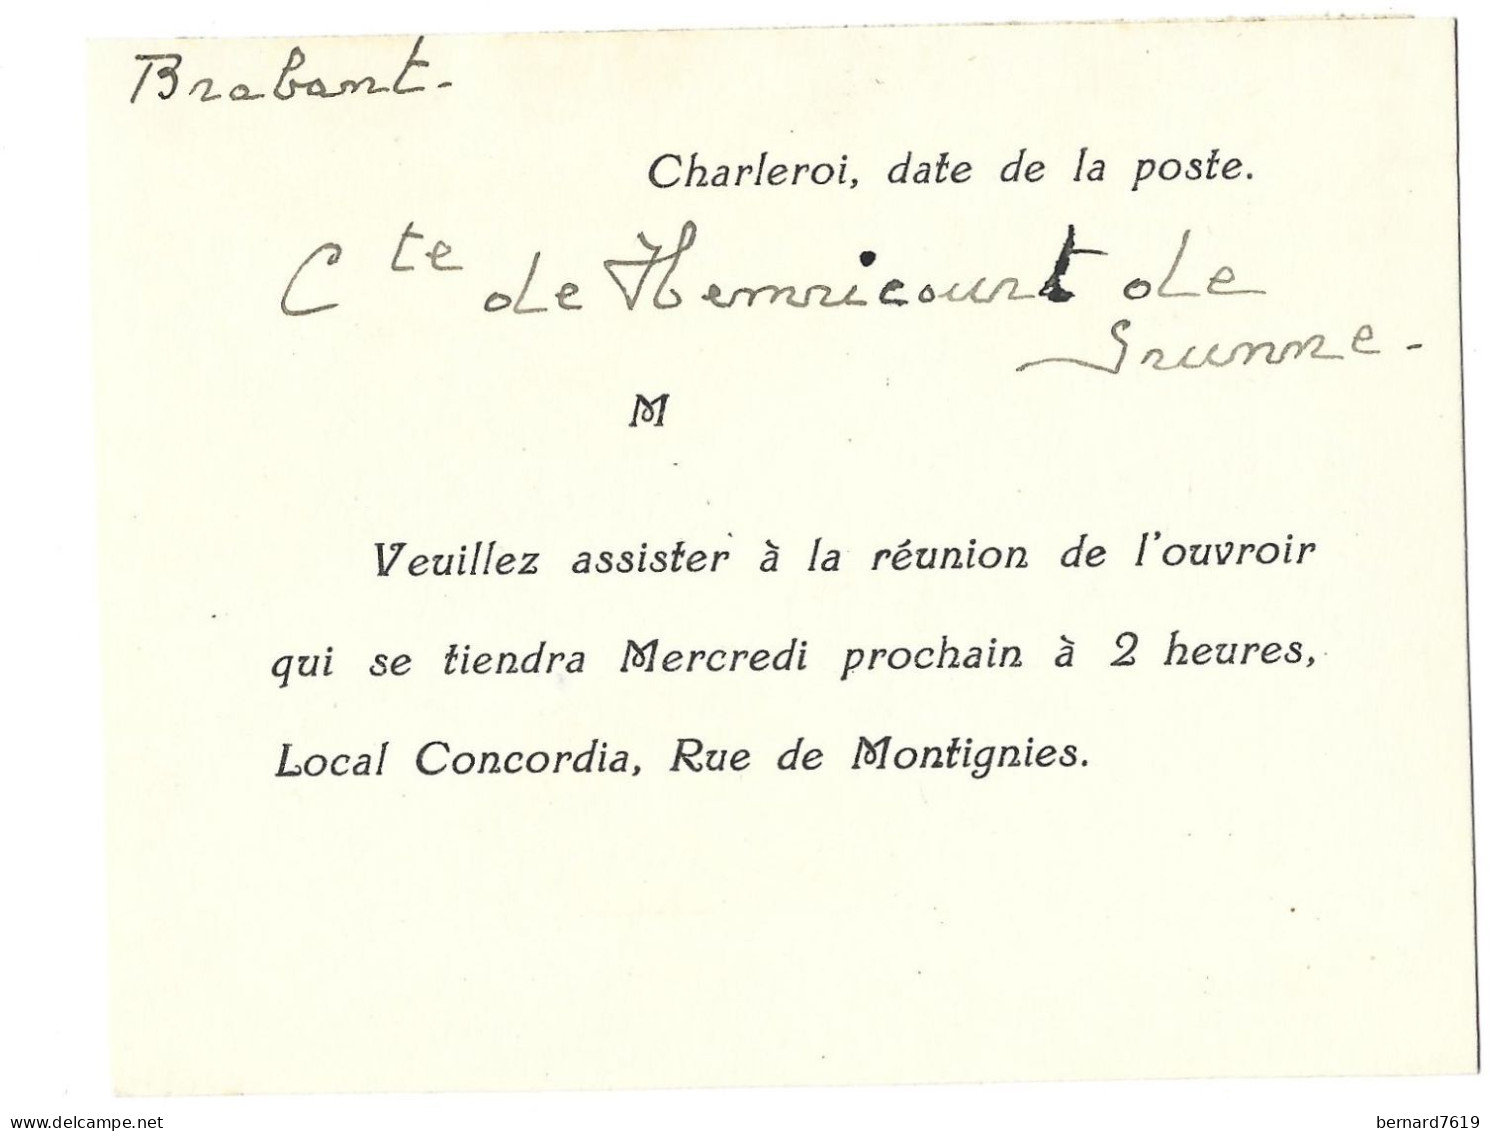 Brabant.
Charleroi, date de la poste.
Cte de Hemricourt de
Grunne.
M
Veuillez assister à la réunion de l'ouvroir
qui se tiendra Mercredi prochain à 2 heures,
Local Concordia, Rue de Montignies.
delcampe.net
bernard7619